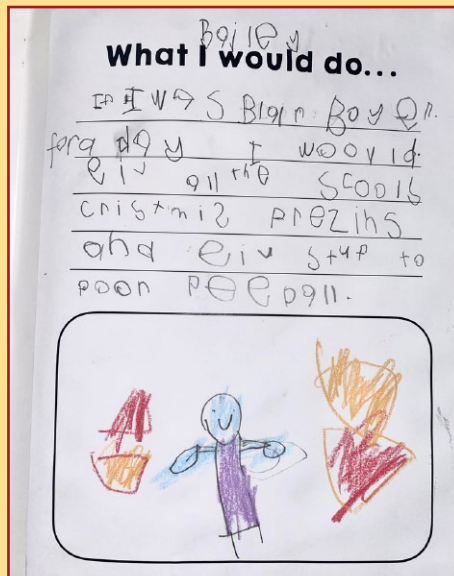 Bailey
What I would do...
If I was Blair Boyer.
for a day I woovld
giv all the scools
cristmis prezins
and giv stuf to
poor peepall.